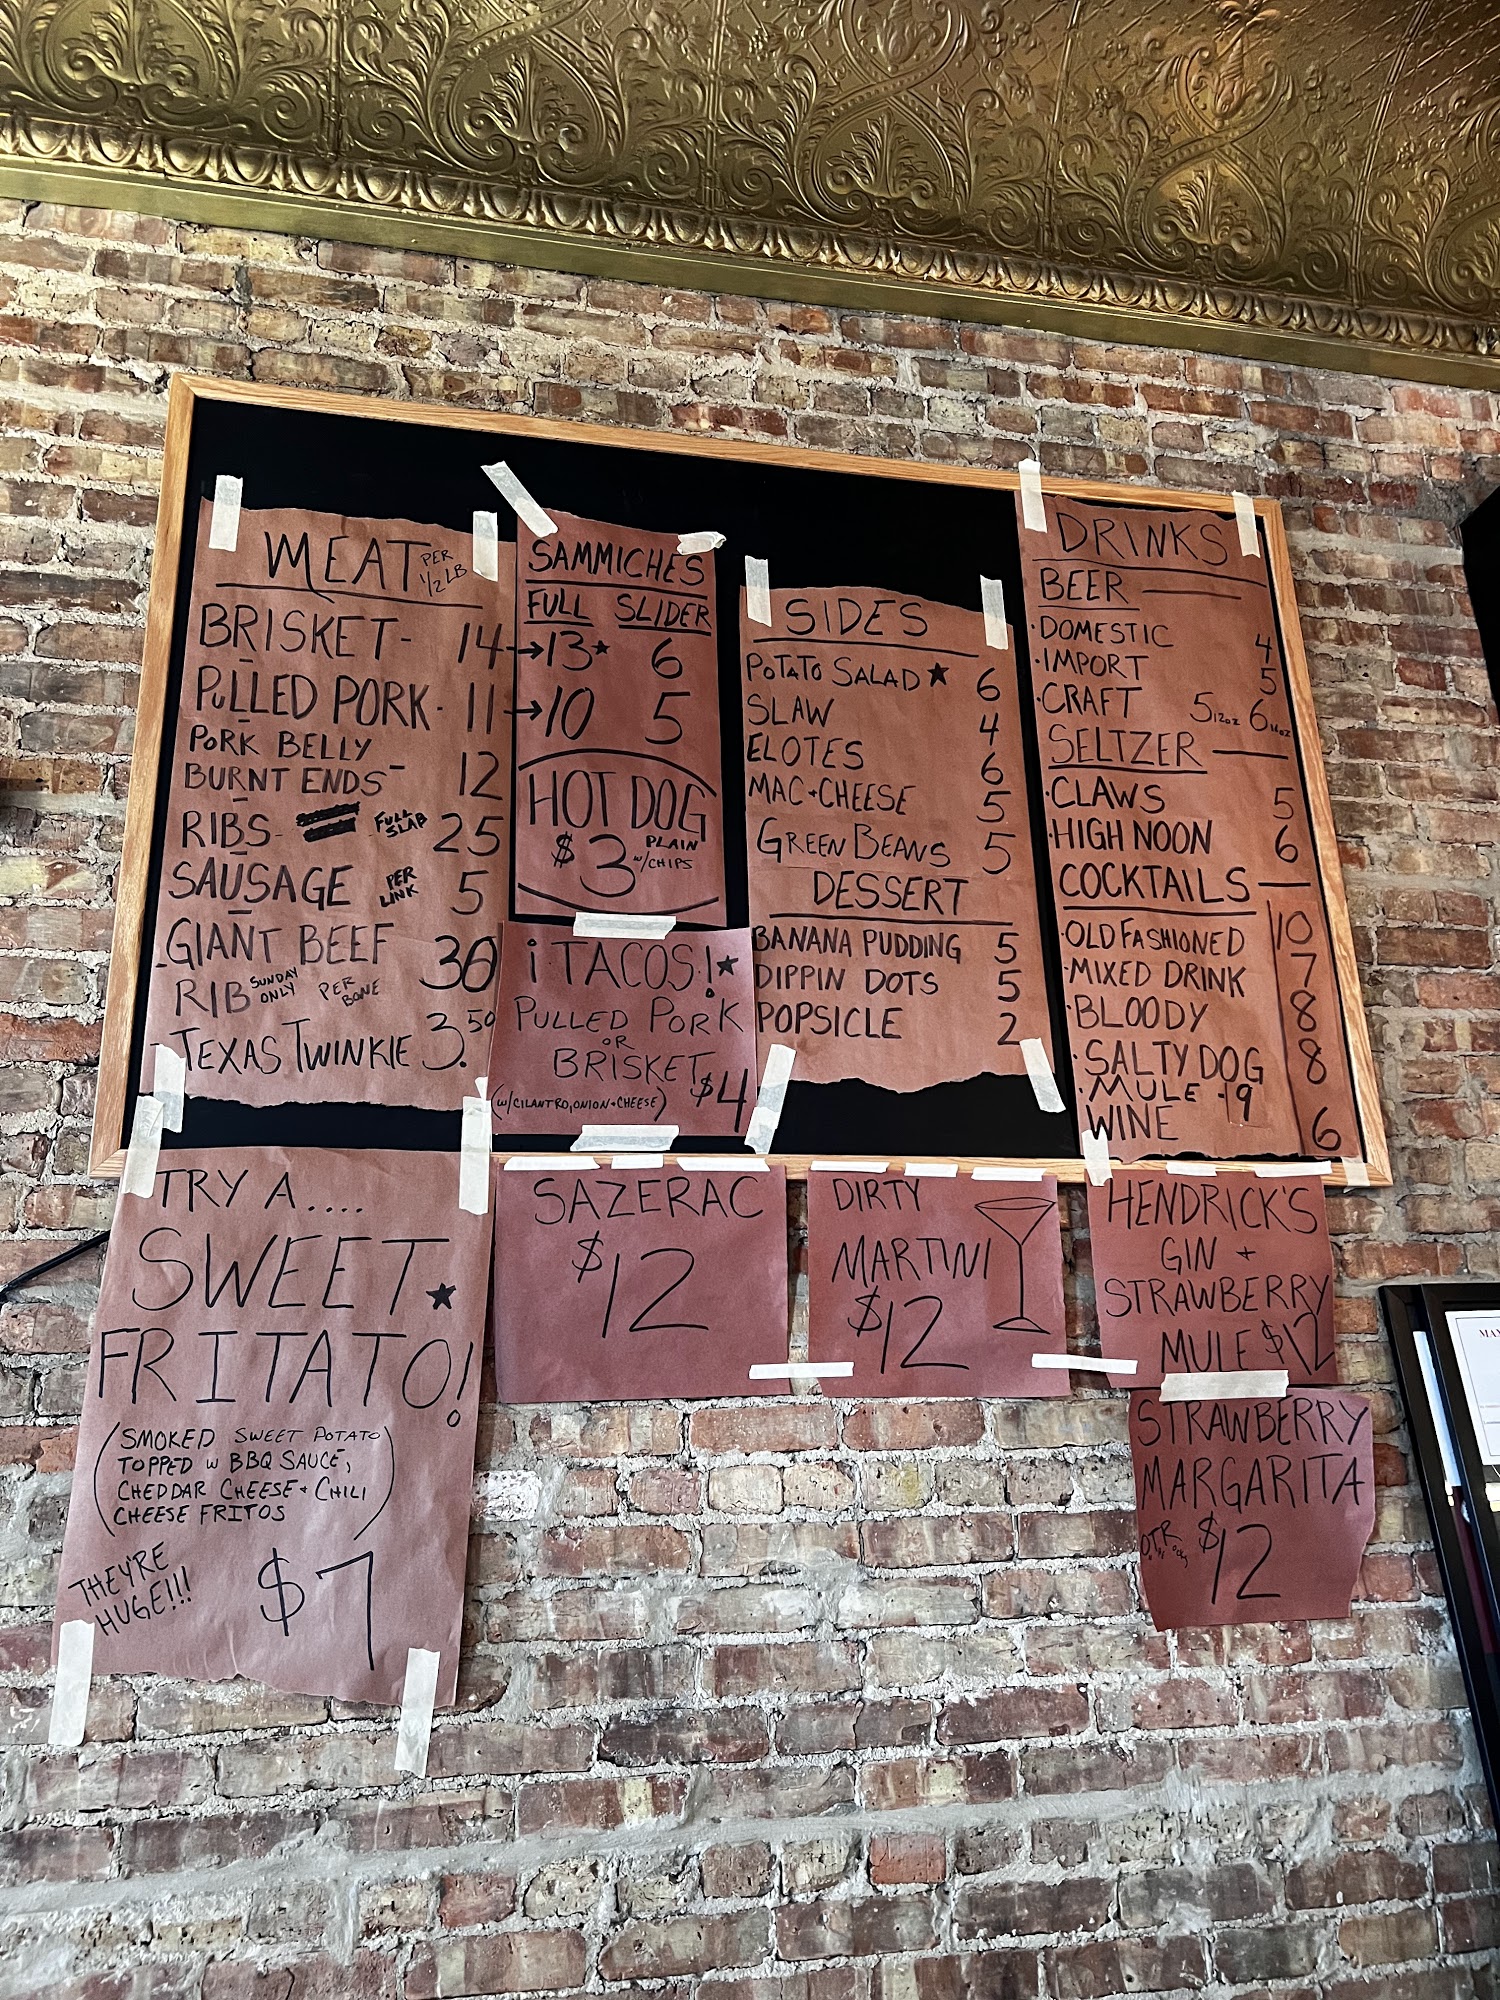 MEAT PER 1/2 LB
BRISKET - 14
PULLED PORK - 11
PORK BELLY
BURNT ENDS - 12
RIBS - FULL SLAB 25
SAUSAGE PER LINK 5
GIANT BEEF
RIB SUNDAY ONLY PER BONE 30
TEXAS TWINKIE 3.50
SAMMICHES
FULL SLIDER
→ 13★ 6
→ 10 5
HOT DOG
$3 PLAIN W/CHIPS
¡TACOS!★
PULLED PORK
OR
BRISKET
(W/CILANTRO, ONION + CHEESE) $4
SIDES
POTATO SALAD ★ 6
SLAW 4
ELOTES 6
MAC + CHEESE 5
GREEN BEANS 5
DESSERT
BANANA PUDDING 5
DIPPIN DOTS 5
POPSICLE 2
DRINKS
BEER
·DOMESTIC 4
·IMPORT 5
·CRAFT 5 12oz 6 16oz
SELTZER
·CLAWS 5
·HIGH NOON 6
COCKTAILS
·OLD FASHIONED 10
·MIXED DRINK 7
·BLOODY 8
·SALTY DOG 8
·MULE - 9
WINE 6
TRY A....
SWEET★
FRITATO!
(SMOKED SWEET POTATO
TOPPED W BBQ SAUCE,
CHEDDAR CHEESE + CHILI
CHEESE FRITOS)
THEY'RE
HUGE!!!
$7
SAZERAC
$12
DIRTY
MARTINI
$12
HENDRICK'S
GIN +
STRAWBERRY
MULE $12
STRAWBERRY
MARGARITA
$12